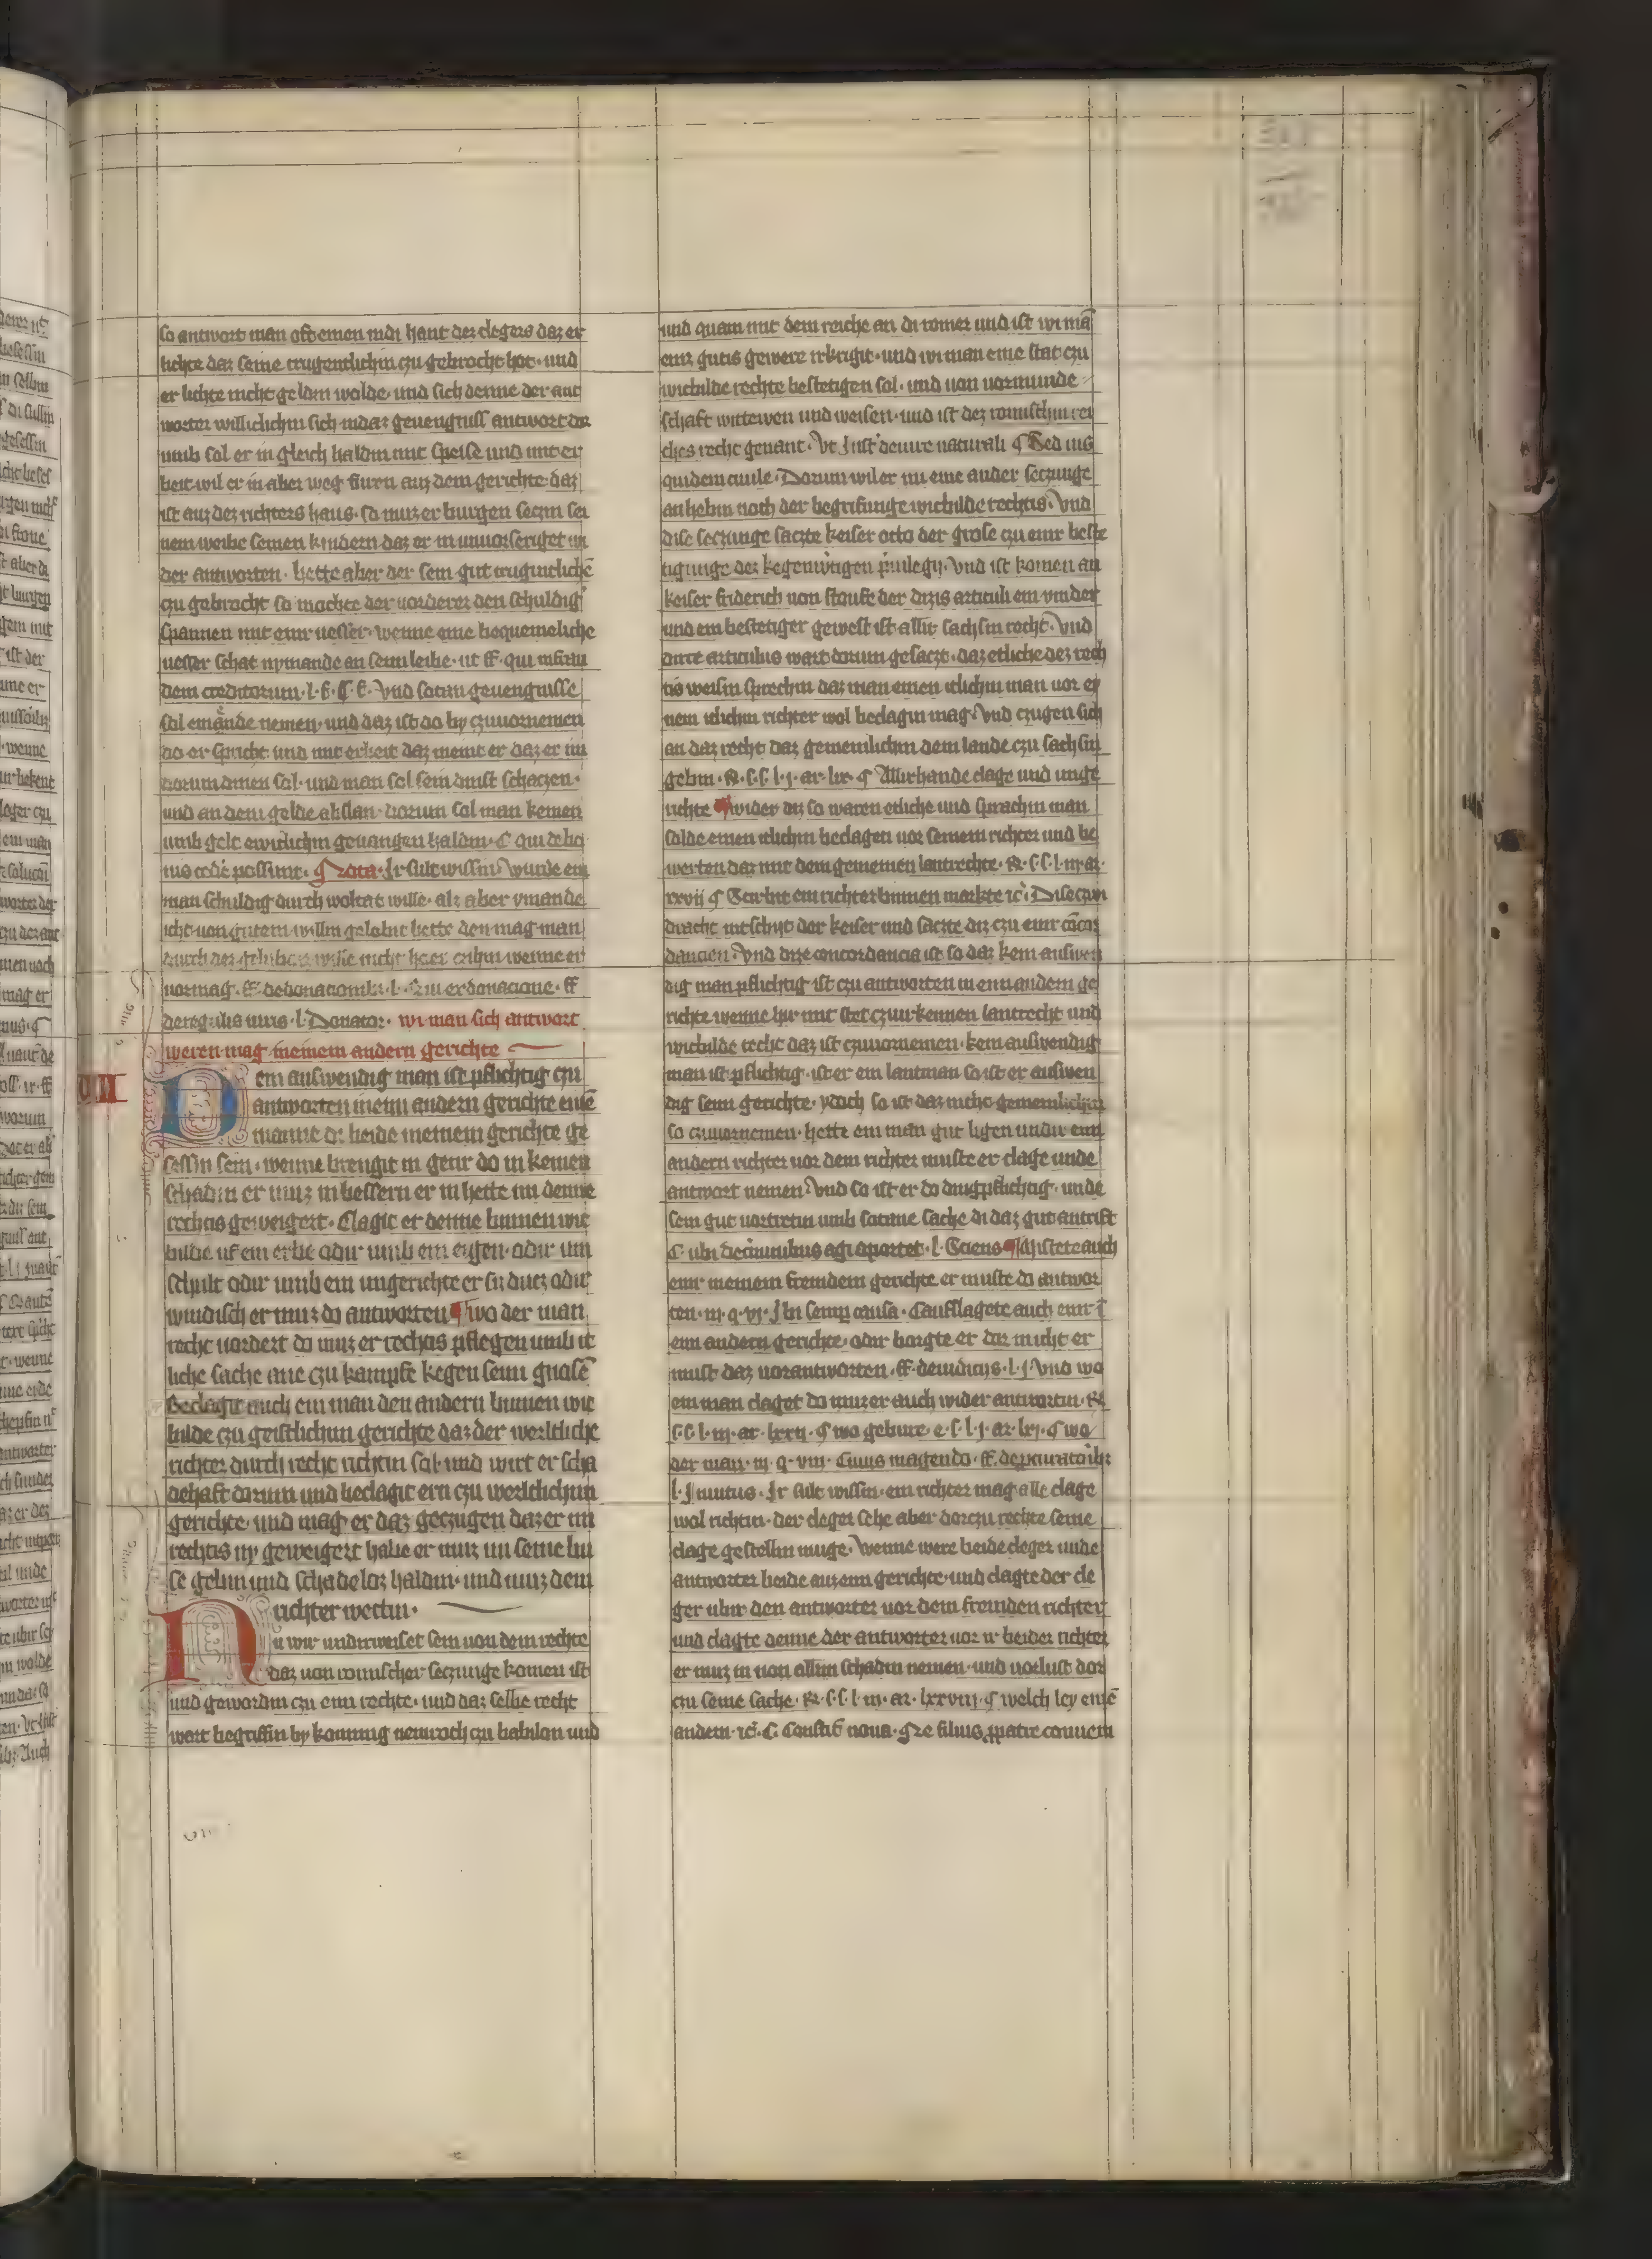 so antwort man oft einen in di hant des clegers daz er
lichte daz seine trugentlichin czu gebrocht hot · und
er lichte nicht geldin wolde · und sich denne der ant
worter willichlichin sich in daz gevengniss antwort dor
umb sol er in gleich haldin mit speise und mit er
beit wil er in aber weg furn auz dem gerichte daz
ist auz dez richters haus · so muz er burgen seczin sei
nem weibe seinen kindern daz er in unvorseriget wi
der antworten · hette aber der sein gut truguntlichē
czu gebrocht so mochte der vorderer den schuldig
spannen mit einr vesser · wenne eine bequemeliche
vesser schat nymande an seim leibe · ut ff · qui in frau
dem creditorum · l · Vnd sotan gevengnisse
sol ein ende nemen · und daz ist do by czuvornemen
do er spricht und mit erbeit daz meint er daz er im
dorum dinen sol · und man sol sein dinst schaczen ·
und an dem gelde abslan · dorum sol man keinen
umb gelt ewiclichin gevangen haldin · C qui bo
nis cedē possunt · Nota · Ir sult wissin Wurde ein
man schuldig durch woltat wille · alz aber ymande
icht von gutem willin gelobit hette den mag man
durch dez gelubdes wille nicht hoer czihin wenne er
vormag · ff de donacionib · l · Qui ex donacione · ff
de regulis iuris · l · Donator · wi man sich antwort
weren mag in einem andern gerichte
VII
Kein auswendig man ist pflichtig czu
antworten in einū andern gerichte einē
manne di beide in einem gerichte ge
sessin sein · wenne brengit in genr do in keinen
schadin er muz in bessern er in hette im denne
rechtis geweigert · Clagit er denne binnen wic
bilde uf ein erbe odir umb ein eygen · odir um
schult odir umb ein ungerichte er si ducz odir
windisch er muz do antworten wo der man
recht vordert do muz er rechtis pflegen umb it
liche sache ane czu kampfe kegen seim gnosē
Beclagit auch ein man den andern binnen wic
bilde czu geistlichim gerichte daz der werltliche
richter durch recht richtin sol · und wirt er scha
dehaft dorum und beclagit ern czu werltlichim
gerichte · und mag er daz geczugen daz er im
rechtis ny geweigert habe er muz im seine bu
se gebin und schadeloz haldin · und muz dem
richter wettin ·
Nu wir underweiset sein von dem rechte
daz von romischer seczunge komen ist
und gewordin czu eim rechte · und daz selbe recht
wart begriffin by konnig nemroch czu babilon und
und quam mit dem reiche an di romer und ist wi mā
einz gutis gewere irkrigit · und wi man eine stat czu
wicbilde rechte bestetigen sol · und von vormunde
schaft wittewen und weisen · und ist dez romischin rei
ches recht genant · Vt Inst' de iure naturali ¶ Sed ius
quidem ciuile · Dorum wil er nu eine ander seczunge
anhebin noch der begrifunge wicbilde rechtis · Vnd
dise seczunge saczte keiser otto der grose czu einr beste
tigunge dez kegenwtigen priuilegij · Vnd ist komen an
keiser friderich von stoufe der dizis articuli ein vinder
und ein bestetiger gewest ist allir sachsin recht · Vnd
dirre articulus wart dorum gesaczt · daz etliche dez rech
tis weisin sprechin daz man einen itlichin man vor ei
nem itlichin richter wol beclagin mag · Vnd czugen sich
an daz recht daz gemeinlichin dem lande czu sachsin
gebin · R · s · s · l · j · ar · lx · ¶ Allirhande clage und unge
richte wider diz so waren etliche und sprachin man
solde einen itlichin beclagen vor seinem richter und be
werten daz mit dem gemeinen lantrechte · R · s · s · l · iij · ar ·
xxvij ¶ Stirbit ein richter binnen markte ic̄ · Dise czwi
dracht intschit der keiser und saczte diz czu einr cōcor
dancien · Vnd dize concordancia ist so daz kein auswen
dig man pflichtig ist czu antworten in eim andern ge
richte wenne hir mit stet czuirkennen lantrecht und
wicbilde recht daz ist czuvornemen · kein auswendig
man ist pflichtig · ist er ein lantman so ist er auswen
dig seim gerichte · ydoch so ist daz nicht gemeinlichin
so czuvornemen · hette ein man gut ligen undir eim
andern richter vor dem richter muste er clage unde
antwort nemen Vnd so ist er do dingpflichtig · unde
sein gut vortretin umb sotane sache di daz gut antrift
C · ubi de criminibus agi oportet · l · Sciens Mistete auch
einr in einem fremdem gerichte er muste do antwor
ten · iij · q · vi · Ibi semper causa · Caufslagete auch einr ī
eim andern gerichte · odir borgte er dor in icht er
must daz vorantworten · ff · de iudicijs · l · j · Vnd wo
ein man claget do muz er auch wider antwortin · R
s · s · l · iij · ar · lxxij · ¶ wo gebure · e · s · l · j · ar · lxj · ¶ wo
der man · iij · q · viij · Cuius in agendo · ff · de procuratorib;
l · Inuitus · Ir sult wissin · ein richter mag alle clage
wol richtin · der cleger sehe aber dorczu rechte seine
clage gestellin muge · Wenne were beide cleger unde
antworter beide auz eim gerichte · und clagte der cle
ger ubir den antworter vor dem fremden richter
und clagte denne der antworter vor ir beider richter
er muz in von allim schadin nemen · und vorlust dor
czu seine sache · R · s · s · l · iij · ar · lxxxvij · ¶ welch ley einē
andern · ic̄ · C · Constit noua · ¶ Ne filius pro patre conuem